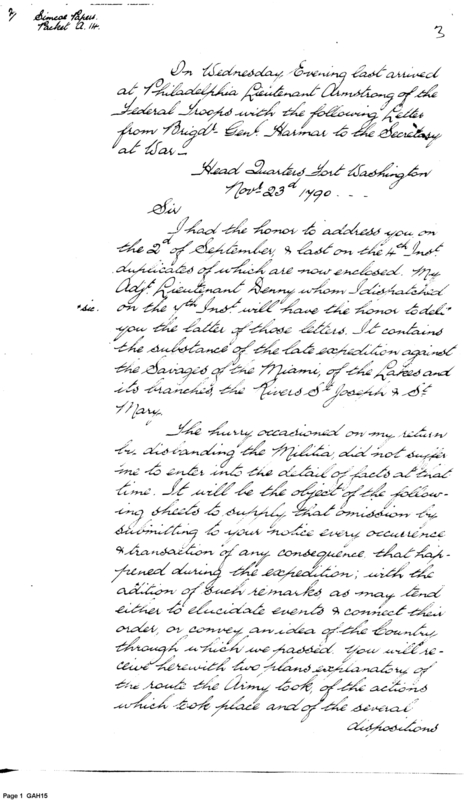 Simcoe Papers.
Packet A. 14.
3
On Wednesday Evening last arrived
at Philadelphia Lieutenant Armstrong of the
Federal Troops with the following Letter
from Brigdr. Genl. Harmar to the Secretary
at War—
Head Quarters, Fort Washington
Novr. 23d 1790. ---
Sir
I had the honor to address you on
the 2d of September, & last on the 4th Inst.
duplicates of which are now enclosed. My
Adjt. Lieutenant Denny whom I dispatched
*sic. on the *th Inst. will have the honor to deli"
you the latter of those letters. It contains
the substance of the late expedition against
the Savages of the Miami, of the Lakes and
its branches, the Rivers St. Joseph & St.
Mary.
The hurry occasioned on my return
by disbanding the Militia, did not suffer
me to enter into the detail of facts at that
time. It will be the object of the follow-
ing sheets to supply that omission by
submitting to your notice every occurrence
& transaction of any consequence that hap-
pened during the expedition; with the
adition of such remarks as may tend
either to elucidate events & connect their
order, or convey an idea of the Country
through which we passed. You will re-
ceive herewith two plans explanatory of
the route the Army took, of the actions
which took place and of the several
dispositions
Page 1 GAH15